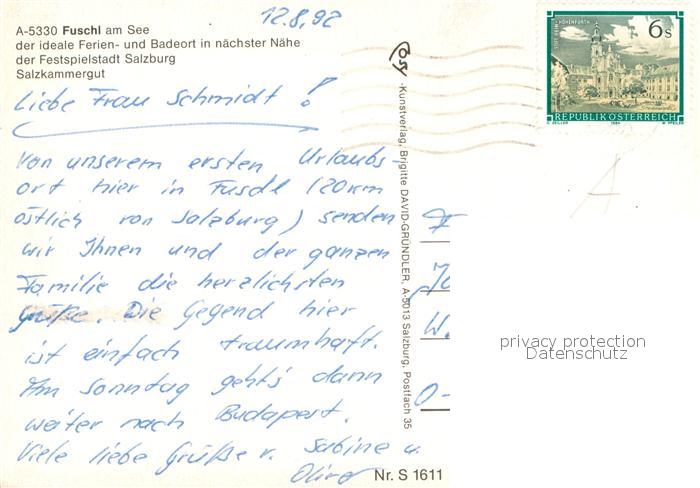 12.8.92
A-5330 Fuschl am See
der ideale Ferien- und Badeort in nächster Nähe
der Festspielstadt Salzburg
Salzkammergut
Liebe Frau Schmidt!
Von unserem ersten Urlaubs-
ort hier in Fuschl (20 km
östlich von Salzburg) senden
wir Ihnen und der ganzen
Familie die herzlichsten
Grüße. Die Gegend hier
ist einfach traumhaft.
Am Sonntag geht's dann
weiter nach Budapest.
Viele liebe Grüße v. Sabine u.
Oliver
Cosy -Kunstverlag, Brigitte DAVID-GRÜNDLER, A-5013 Salzburg, Postfach 35
Nr. S 1611
6s
REPUBLIK ÖSTERREICH
F
W.
O-
privacy protection
Datenschutz